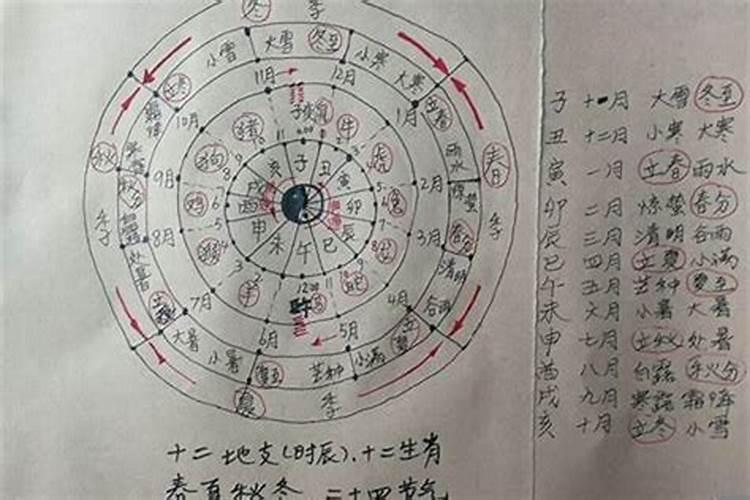 冬 季
小雪 大雪 冬至 小寒 大寒
立冬 11月 12月 立春
10月 1月
霜降 雨水
秋 寒露 9月 2月 惊蛰 春
秋分
季 白露 8月 3月 春分 季
处暑 清明
立秋 7月 4月 谷雨
大暑 6月 5月 立夏
小暑 夏至 芒种 小满
夏 季
猪 鼠 牛
狗 虎
鸡 兔
猴
羊 蛇
子
亥 丑
戌 寅
酉 卯
申 辰
未 午 巳
12:00
子 十一月 大雪 冬至
丑 十二月 小寒 大寒
寅 一月 立春 雨水
卯 二月 惊蛰 春分
辰 三月 清明 谷雨
巳 四月 立夏 小满
午 五月 芒种 夏至
未 六月 小暑 大暑
申 七月 立秋 处暑
酉 八月 白露 秋分
戌 九月 寒露 霜降
亥 十月 立冬 小雪
十二地支(时辰)、十二生肖
春夏秋冬 二十四节气